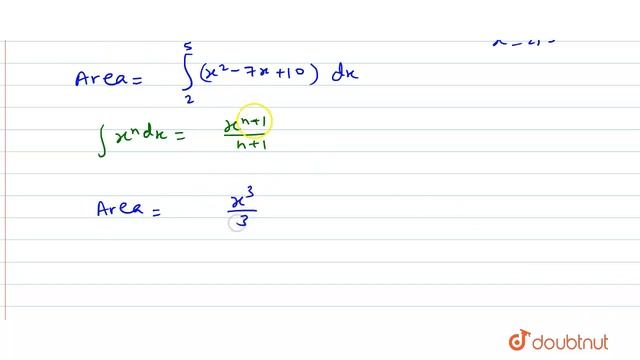 Area = ∫₂⁵ (x² - 7x + 10) dx
∫ xⁿ dx = xⁿ⁺¹/n+1
Area = x³/3
doubtnut